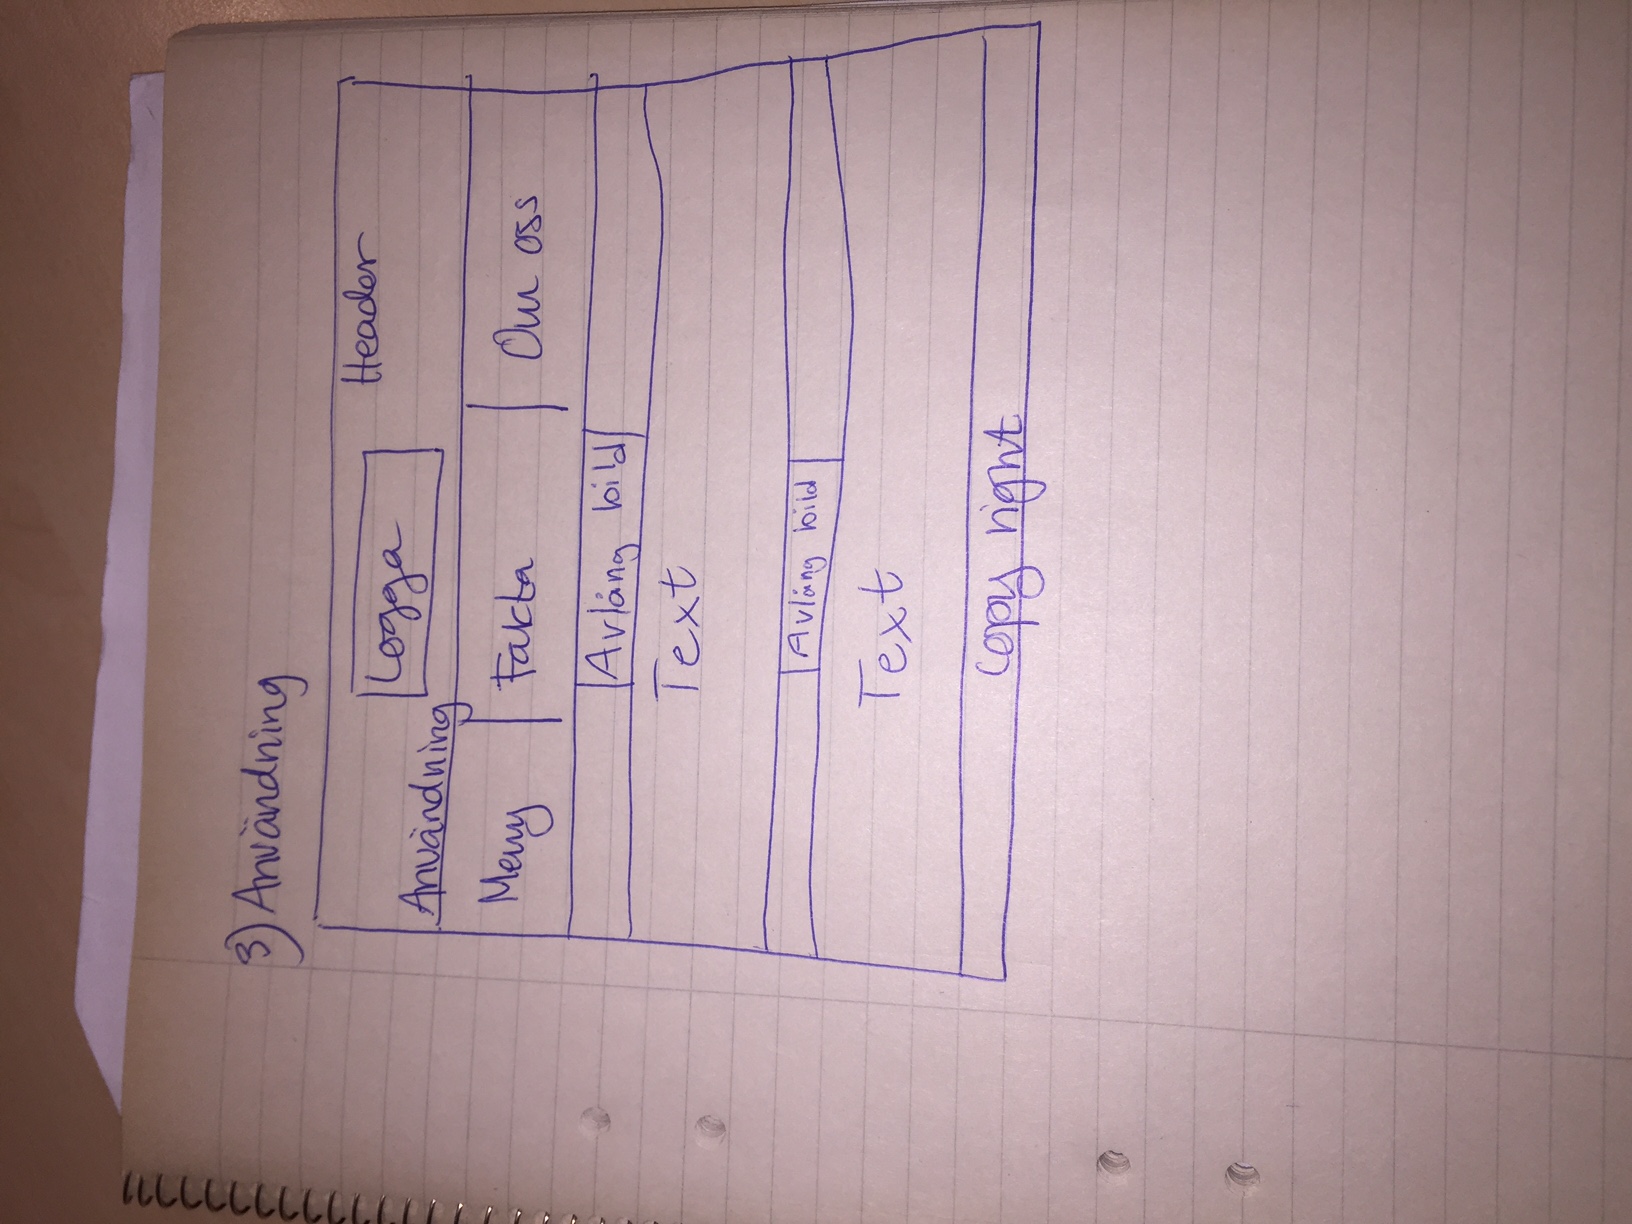 3) Användning
Header
Logga
Användning
Meny Fakta Om oss
Avlång bild
Text
Avlång bild
Text
Copy right